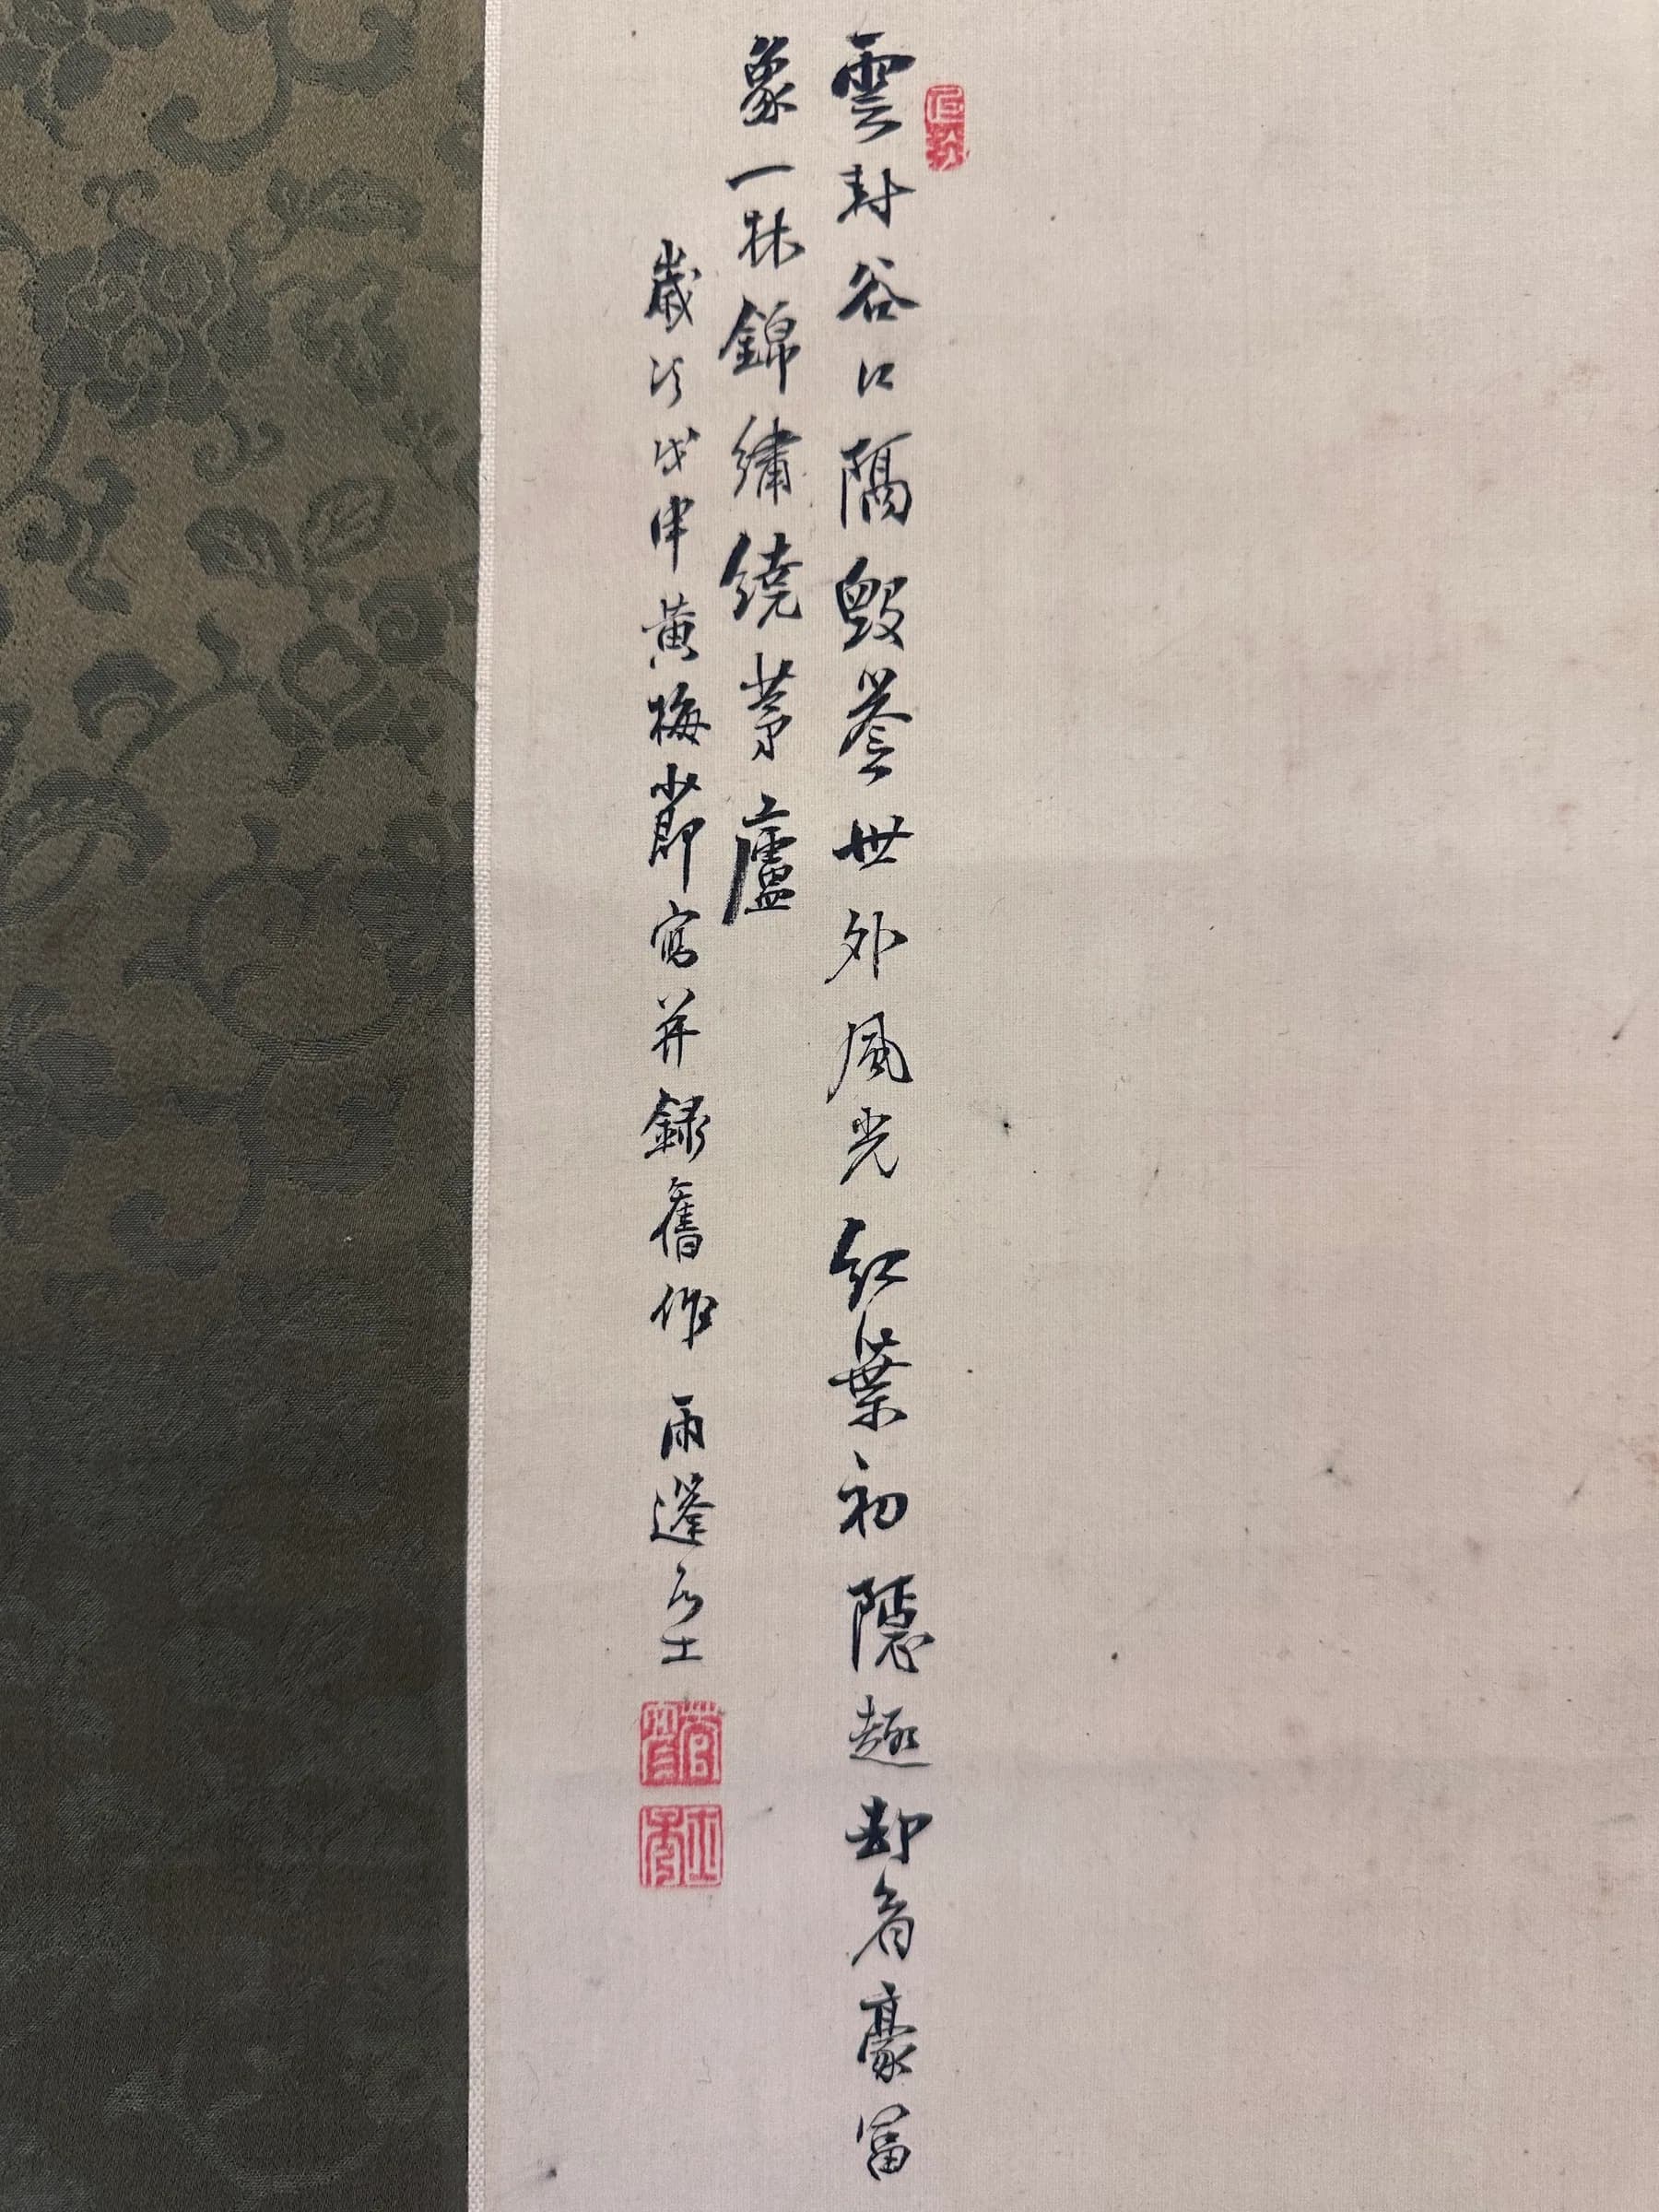 雲封谷口隔毀譽世外風光紅葉初隱趣却看豪富
象一林錦繡繞茅廬
歲次戊申黃梅節寫并録舊作 雨逢居士